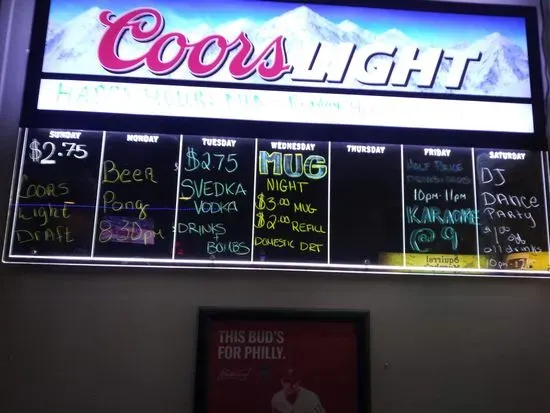 Coors LIGHT
HAPPY HOUR:
SUNDAY
$2.75
Coors
Light
Draft
MONDAY
Beer
Pong
8:30pm
TUESDAY
$275
SVEDKA
VODKA
DRINKS
+
BOMBS
WEDNESDAY
MUG
NIGHT
$3.00 MUG
$2.00 REFILL
DOMESTIC DRT
THURSDAY
FRIDAY
HALF PRICE
10pm-11pm
KARAOKE
@ 9
SATURDAY
DJ
DANCE
PARTY
off
all drinks
10pm-12
THIS BUD'S
FOR PHILLY.